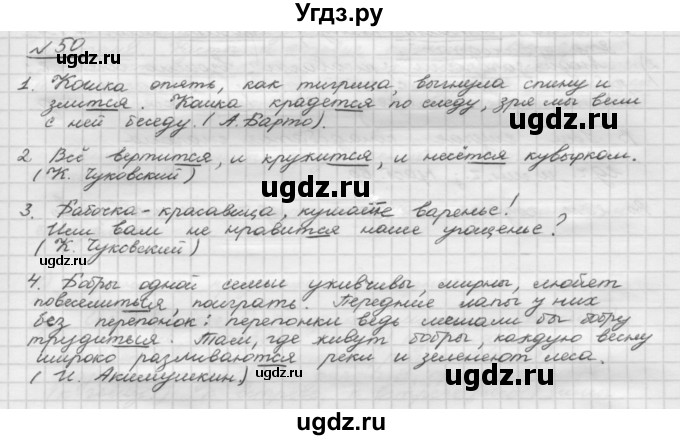 Угдз.ру
№50
1. Кошка опять, как тигрица, выгнула спину и
злится. Кошка крадётся по следу, зря мы вели
с ней беседу. (А. Барто).
2 Всё вертится, и кружится, и несётся кувырком.
(К. Чуковский)
3. Бабочка-красавица, кушайте варенье!
Или вам не нравится наше угощенье?
(К. Чуковский)
4. Бобры одной семьи уживчивы, мирны, любят
повеселиться, поиграть. Передние лапы у них
без перепонок: перепонки ведь мешали бы бобру
трудиться. Там, где живут бобры, каждую весну
широко разливаются реки и зеленеют леса.
(И. Акимушкин)
ugdz.ru
ugdz.ru
ugdz.ru
ugdz.ru
ugdz.ru
ugdz.ru
ugdz.ru
ugdz.ru
ugdz.ru
ugdz.ru
ugdz.ru